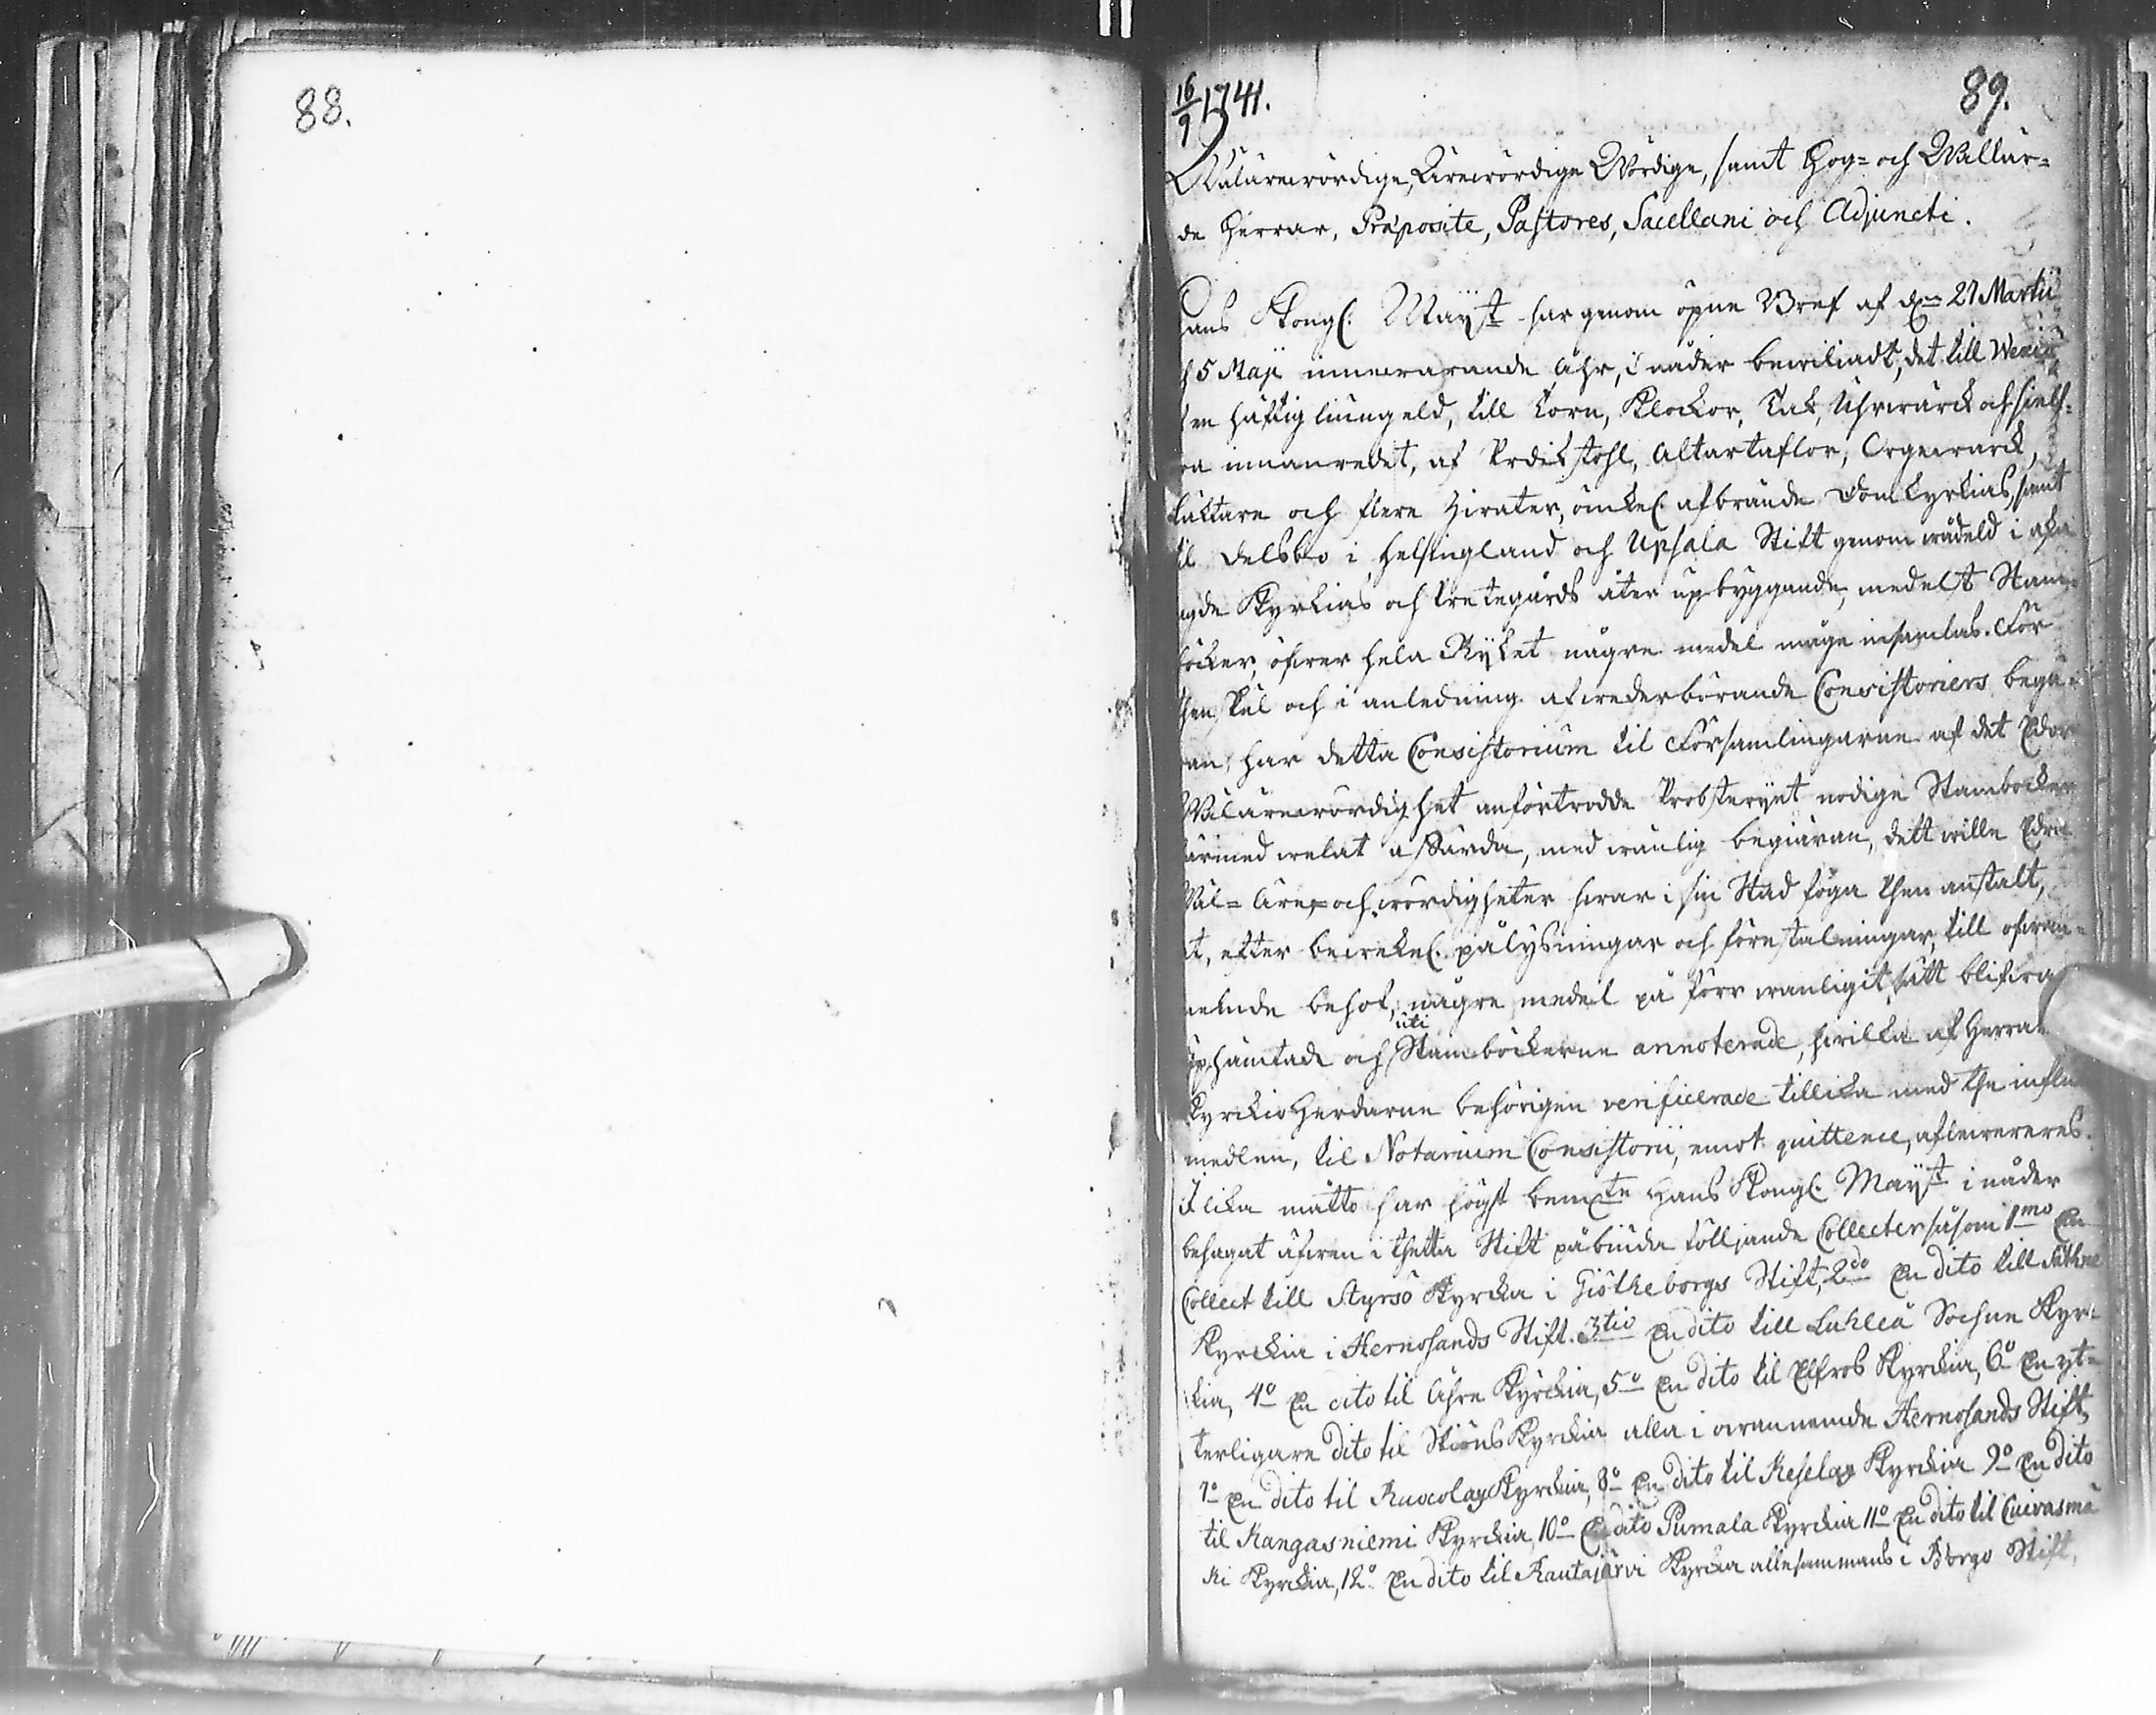 88.
16/9 1741.
89.
Wälärewördige, Ärewördige Wördige, samt Hög- och Wällär-
de Herrar, Præposite, Pastores, Sacellani och Adjuncti.
Hans Kongl. Mayst har genom öpne Bref af den 21 Martii
5 Maji innewarande Åhr, i nåder bewiliadt, det till Wexiö
en häftig liungeld, till torn, Klockor, tak, Uhrwärck och sielf-
va innanredet, af Predikstohl, Altartaflor, Orgewerck,
läktare och flere Zirater, ömkel. afbrände Domkyrkias, samt
il Delsbo i Helsingland och Upsala Stift genom wådeld i aska
lagde Kyrkias och Prestegårds åter upbyggande, medelst Stam-
böcker, öfwer hela Ryket någre medel måge insamlas. För
then skul och i anledning af wederbörande Consistoriers begä-
ran, har detta Consistorium til Församlingarne af det Edor
Wälärewördighet anförtrodde Probsteriet nödige Stamböcker
härmed welat afsända, med wänlig begiäran, dett wille Edre
Wäl- Äre- och wördigheter hwar i sin Stad föga then anstalt,
at, efter bewekel. pålysningar och föreställningar, till ofwan-
nemde behof, någre medel på förr wanligit sätt blifwa
uphämtade och uti Stamböckerne annoterade, hwilka af Herrar
Kyrckio Herdarne behörigen verificerade tillika med the influtne
medlen, til Notarium Consistorii, emot quittence, aflewereres.
I lika måtto har högst bemte Hans Kongl. Mayst i nåder
behagat äfwen i thetta Stift påbiuda följande Collecter såsom 1mo En
Collect till Styrsö Kyrcka i Giötheborgs Stift, 2do En dito till Säthne
Kyrckia i Hernosands Stift. 3tio En dito till Luhleå Sochne Kyr-
kia, 4o En dito til Åhre Kyrckia, 5o En dito til Elfros Kyrckia, 6o En yt-
terligare dito til Skiöns Kyrckia alla i owannemde Hernosands Stift,
7o En dito til Ruocolax Kyrckia, 8o En dito til Keselax Kyrckia 9o En dito
til Kangasniemi Kyrckia, 10o En dito Pumala Kyrckia 11o En dito til Cuivasmä
ki Kyrckia, 12o En dito til Rautajärvi Kyrcka allesammans i Borgo Stift,